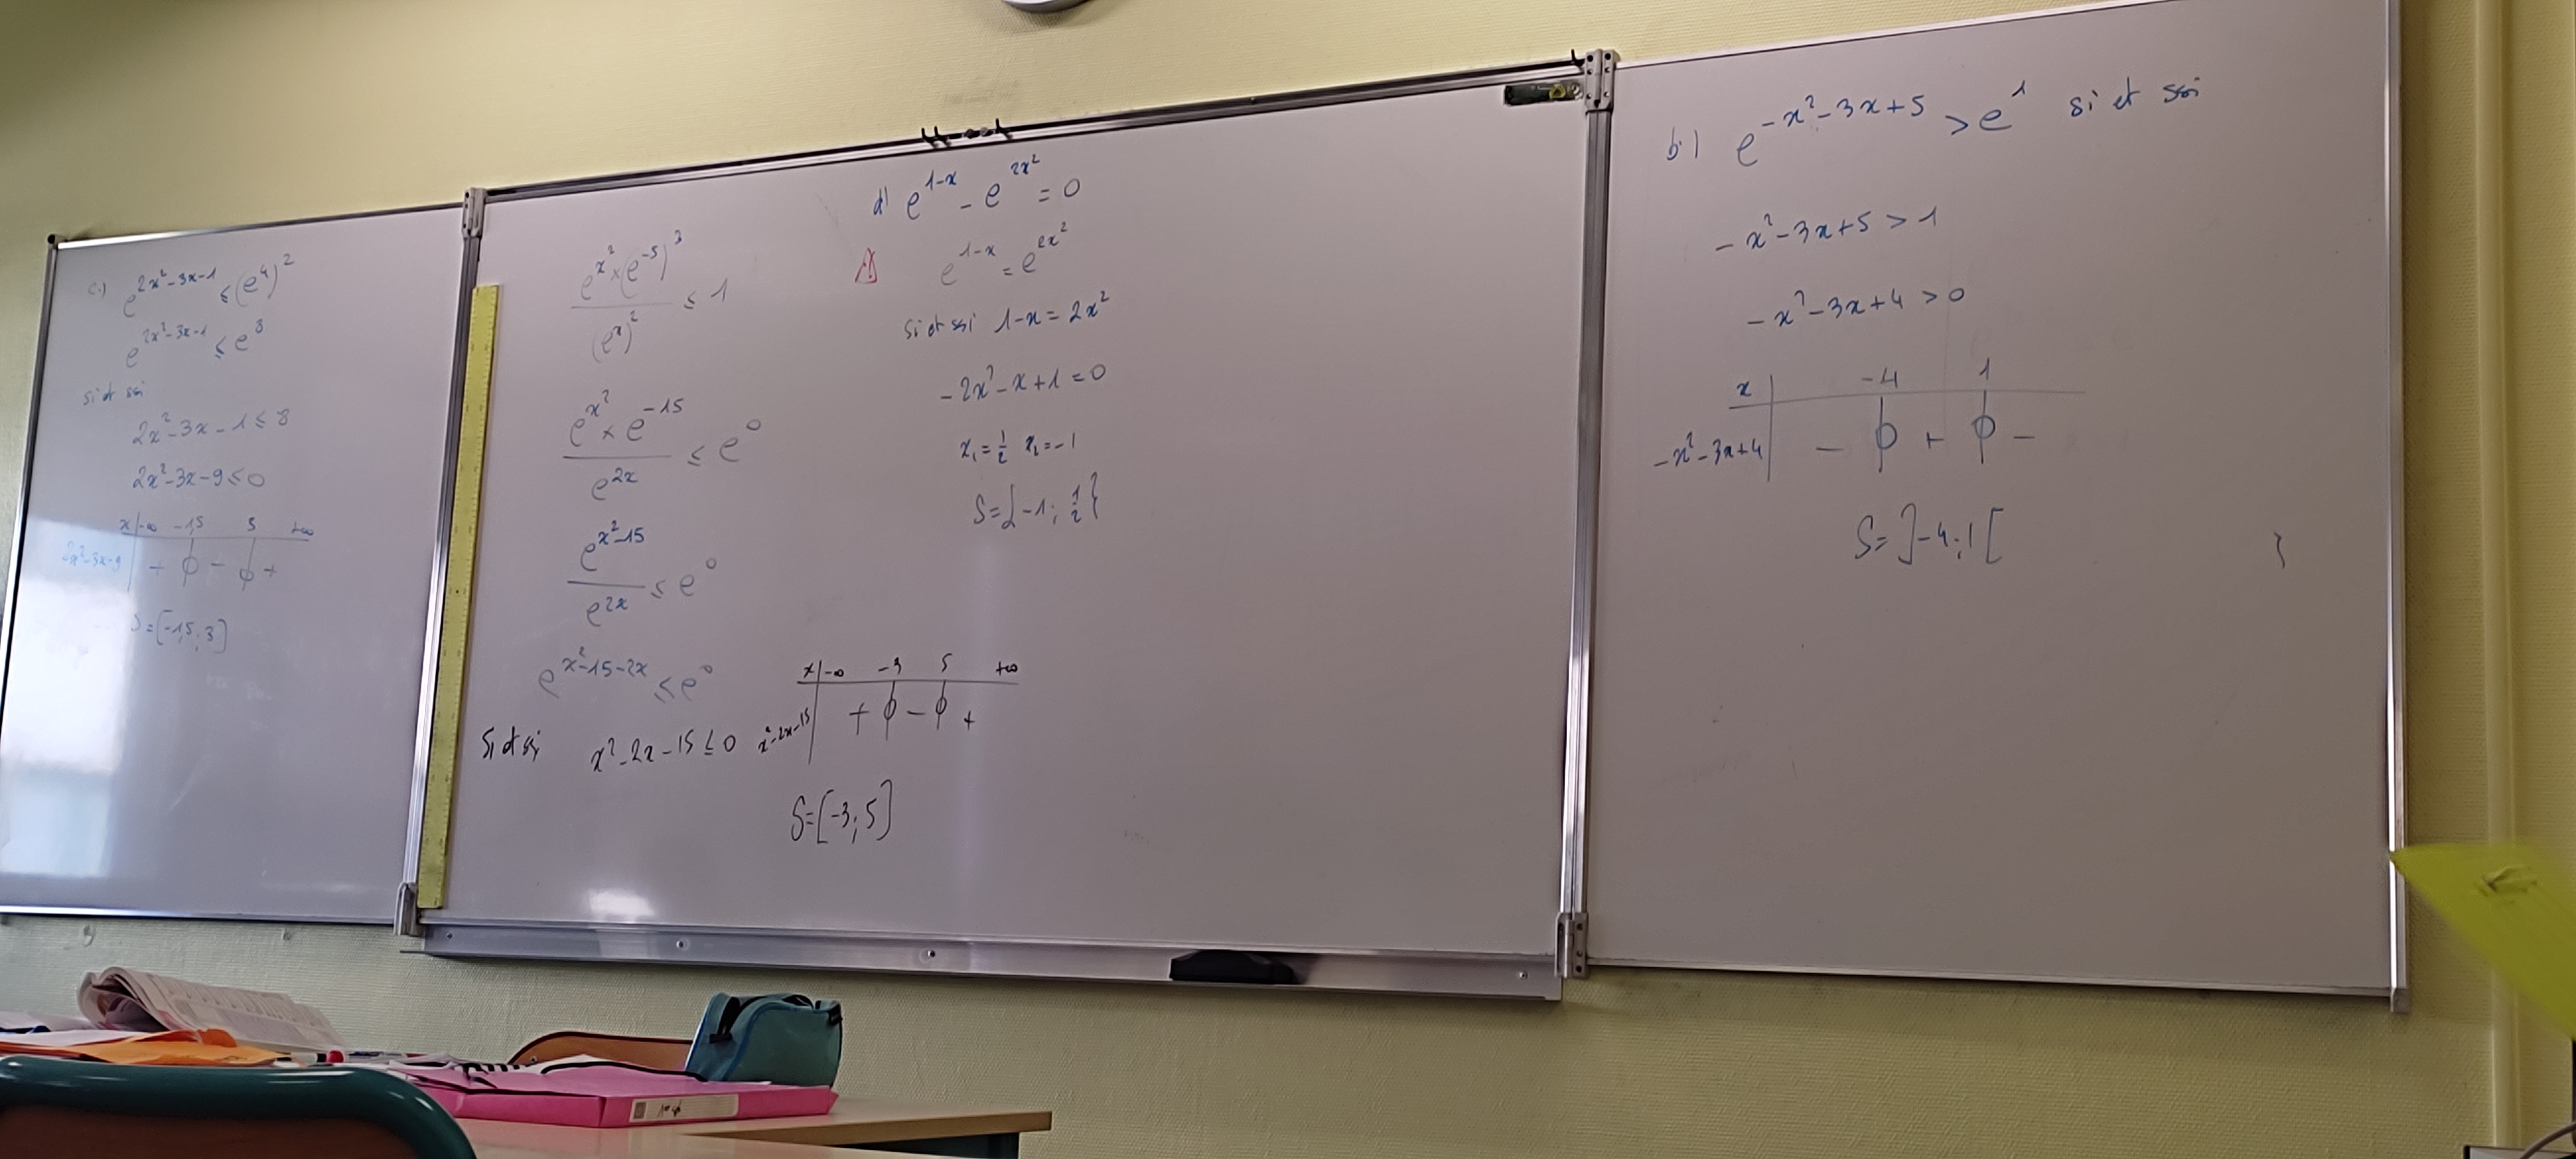 c.) e^{2x²-3x-1} ≤ (e⁴)²
e^{2x²-3x-1} ≤ e⁸
si et ssi
2x²-3x-1 ≤ 8
2x²-3x-9 ≤ 0
x | -∞ -1,5 3 +∞
2x²-3x-9 | + ϕ - ϕ +
S=[-1,5; 3]
e^{x²}×(e^{-5})³ / (e^x)² ≤ 1
e^{x²} × e^{-15} / e^{2x} ≤ e⁰
e^{x²-15} / e^{2x} ≤ e⁰
e^{x²-15-2x} ≤ e⁰
Si et ssi x²-2x-15 ≤ 0
x | -∞ -3 5 +∞
x²-2x-15 | + ϕ - ϕ +
S=[-3; 5]
d) e^{1-x} - e^{2x²} = 0
⚠ e^{1-x} = e^{2x²}
Si et ssi 1-x = 2x²
-2x²-x+1 = 0
x₁ = 1/2 x₂ = -1
S={-1; 1/2}
b.) e^{-x²-3x+5} > e¹ si et ssi
-x²-3x+5 > 1
-x²-3x+4 > 0
x | -4 1
-x²-3x+4 | - ϕ + ϕ -
S=]-4;1[